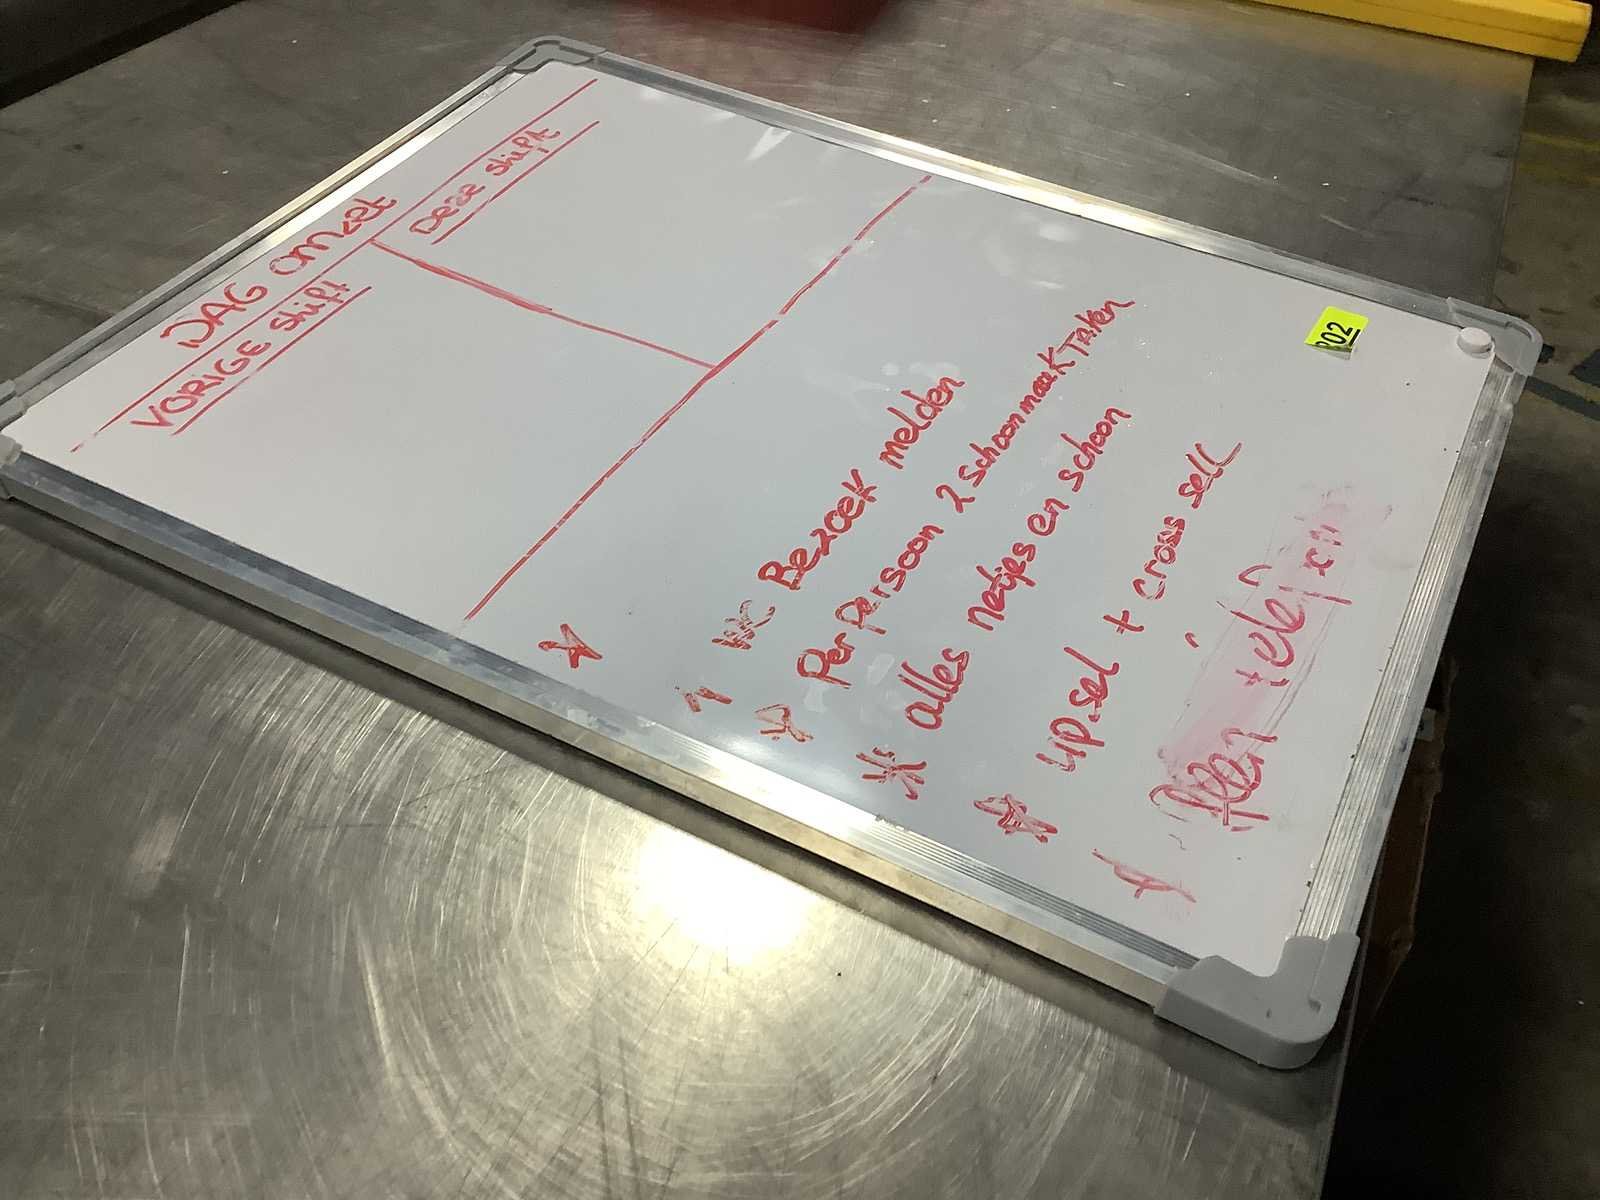 DAG omzet
VORIGE shift
Deze shift
WC Bezoek melden
Per persoon 2 schoonmaak Taken
alles netjes en schoon
up.sel + cross sell
geen telefoon
302